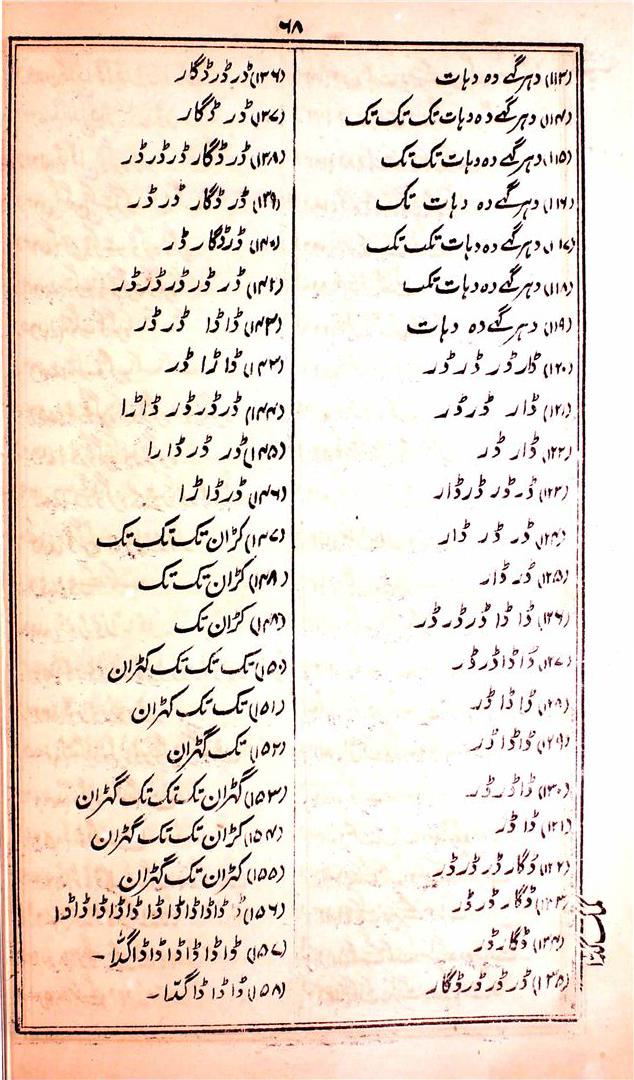 ۶۸
(۱۱۳) دہرگھے دہ دہات
(۱۱۴) دہرگھے دہ دہات تک تک تک
(۱۱۵) دہرگھے دہ دہات تک تک
(۱۱۶) دہرگھے دہ دہات تک
(۱۱۷) دہرگھے دہ دہات تک تک
(۱۱۸) دہرگھے دہ دہات تک
(۱۱۹) دہرگھے دہ دہات
(۱۲۰) ڈار ڈر ڈر ڈر
(۱۲۱) ڈار ڈر ڈر
(۱۲۲) ڈار ڈر
(۱۲۳) ڈر ڈر ڈر ڈار
(۱۲۴) ڈر ڈر ڈار
(۱۲۵) ڈر ڈار
(۱۲۶) ڈا ڈا ڈر ڈر ڈر
(۱۲۷) ڈا ڈا ڈر ڈر
(۱۲۸) ڈا ڈا ڈر
(۱۲۹) ڈا ڈا ڈر
(۱۳۰) ڈا ڈر ڈر
(۱۳۱) ڈا ڈر
(۱۳۲) ڈگار ڈر ڈر ڈر
(۱۳۳) ڈگار ڈر ڈر
(۱۳۴) ڈگار ڈر
(۱۳۵) ڈر ڈر ڈر ڈگار
(۱۳۶) ڈر ڈر ڈگار
(۱۳۷) ڈر ڈگار
(۱۳۸) ڈر ڈگار ڈر ڈر ڈر
(۱۳۹) ڈر ڈگار ڈر ڈر
(۱۴۰) ڈر ڈگار ڈر
(۱۴۲) ڈر ڈر ڈر ڈر ڈر ڈر
(۱۴۳) ڈا ڈا ڈر ڈر
(۱۴۳) ڈا ڑا ڈر
(۱۴۴) ڈر ڈر ڈر ڈا ڑا
(۱۴۵) ڈر ڈر ڈا را
(۱۴۶) ڈر ڈا ڑا
(۱۴۷) کڑان تک تک تک
(۱۴۸) کڑان تک تک
(۱۴۹) کڑان تک
(۱۵۰) تک تک تک گھڑان
(۱۵۱) تک تک گھڑان
(۱۵۲) تک گھڑان
(۱۵۳) گھڑان تک تک تک گھڑان
(۱۵۴) کڑان تک تک گھڑان
(۱۵۵) کڑان تک گھڑان
(۱۵۶) ڈا ڈا ڈا ڈا ڈا ڈا ڈا ڈا ڈا ڈا
(۱۵۷) ڈا ڈا ڈا ڈا ڈا ڈا ڈا گدّا -
(۱۵۸) ڈا ڈا ڈا گدّا -